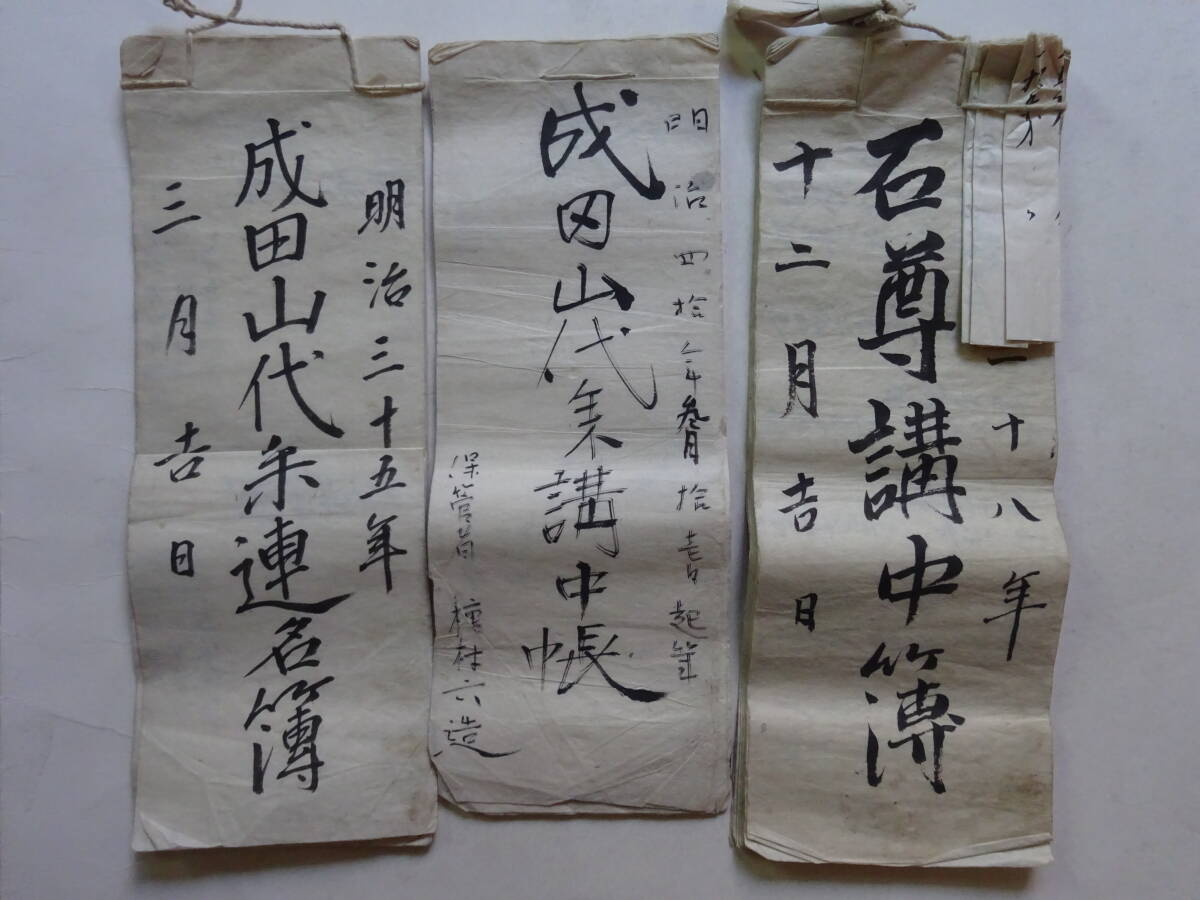 一十八年
石尊講中簿
十二月吉日
明治四拾年参月拾壱日起筆
成田山代参講中帳
保管者 六造
明治三十五年
成田山代参連名簿
三月吉日